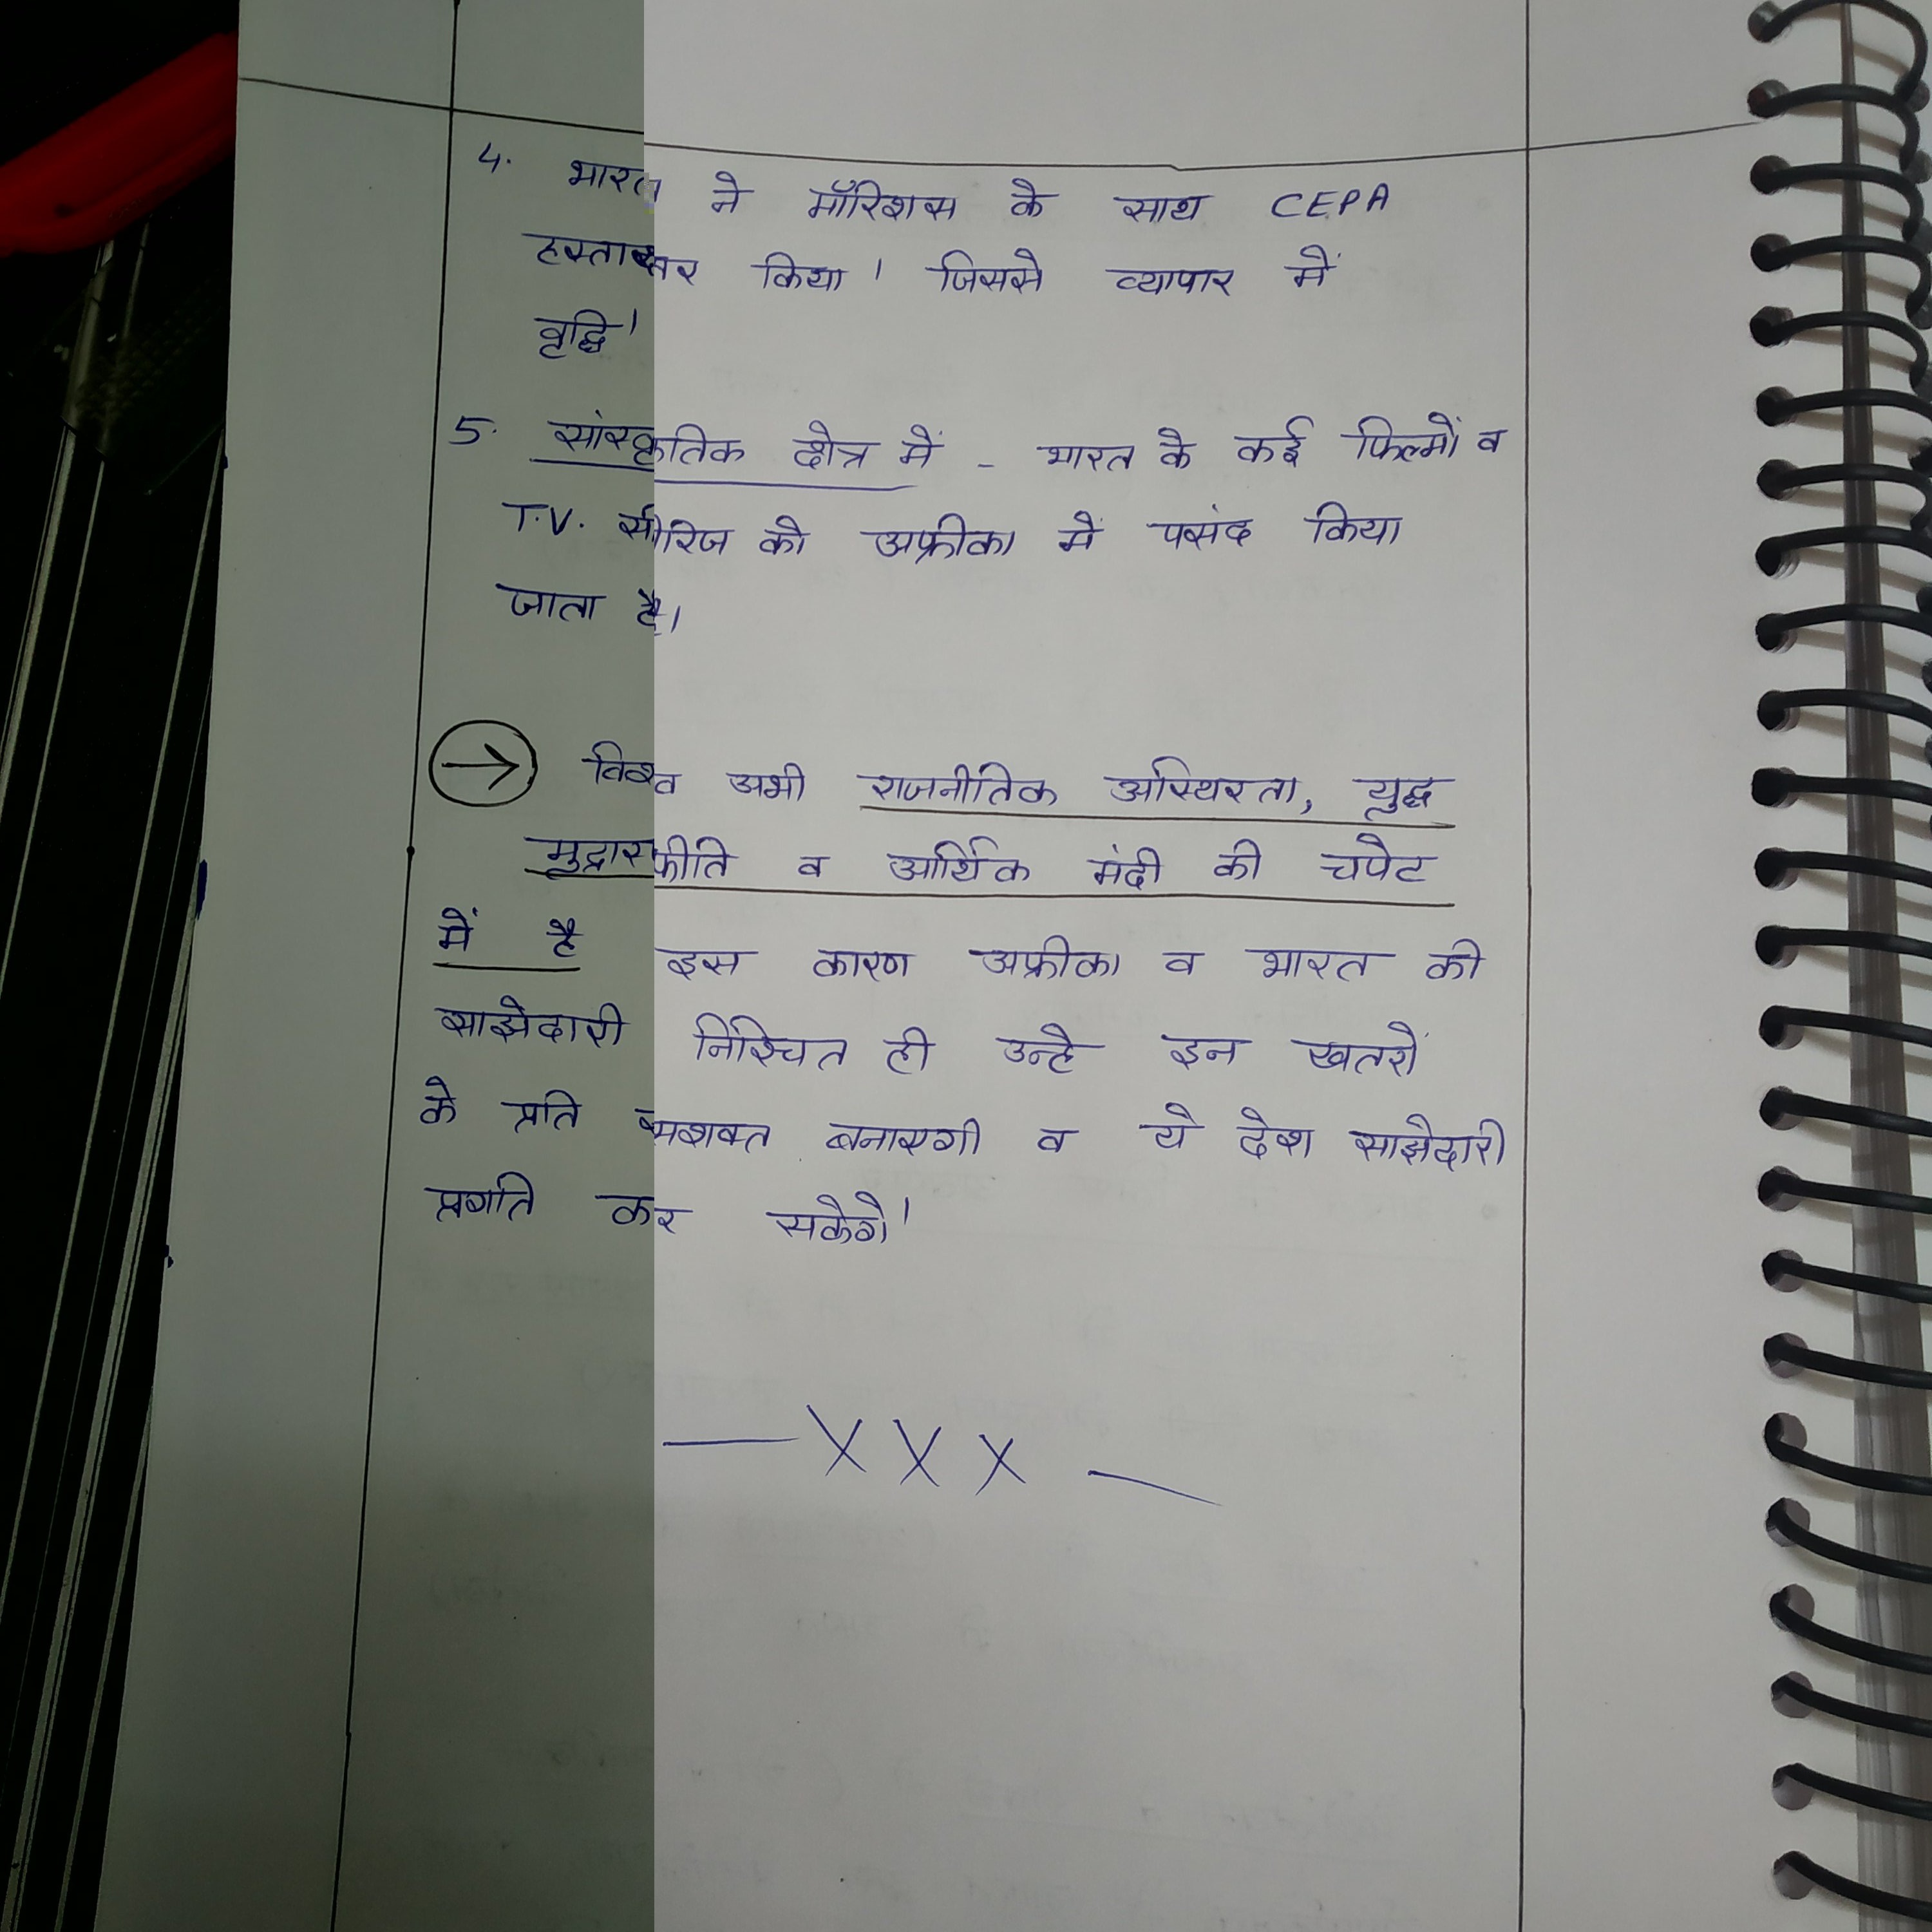 4. भारत ने मॉरिशस के साथ CEPA
हस्ताक्षर किया। जिससे व्यापार में
वृद्धि।
5. सांस्कृतिक क्षेत्र में - भारत के कई फिल्मों व
T.V. सीरिज को अफ्रीका में पसंद किया
जाता है।
→ विश्व अभी राजनीतिक अस्थिरता, युद्ध
मुद्रास्फीति व आर्थिक मंदी की चपेट
में है इस कारण अफ्रीका व भारत की
साझेदारी निश्चित ही उन्हे इन खतरों
के प्रति सशक्त बनाएगी व ये देश साझेदारी
प्रगति कर सकेगे।
— X X X —